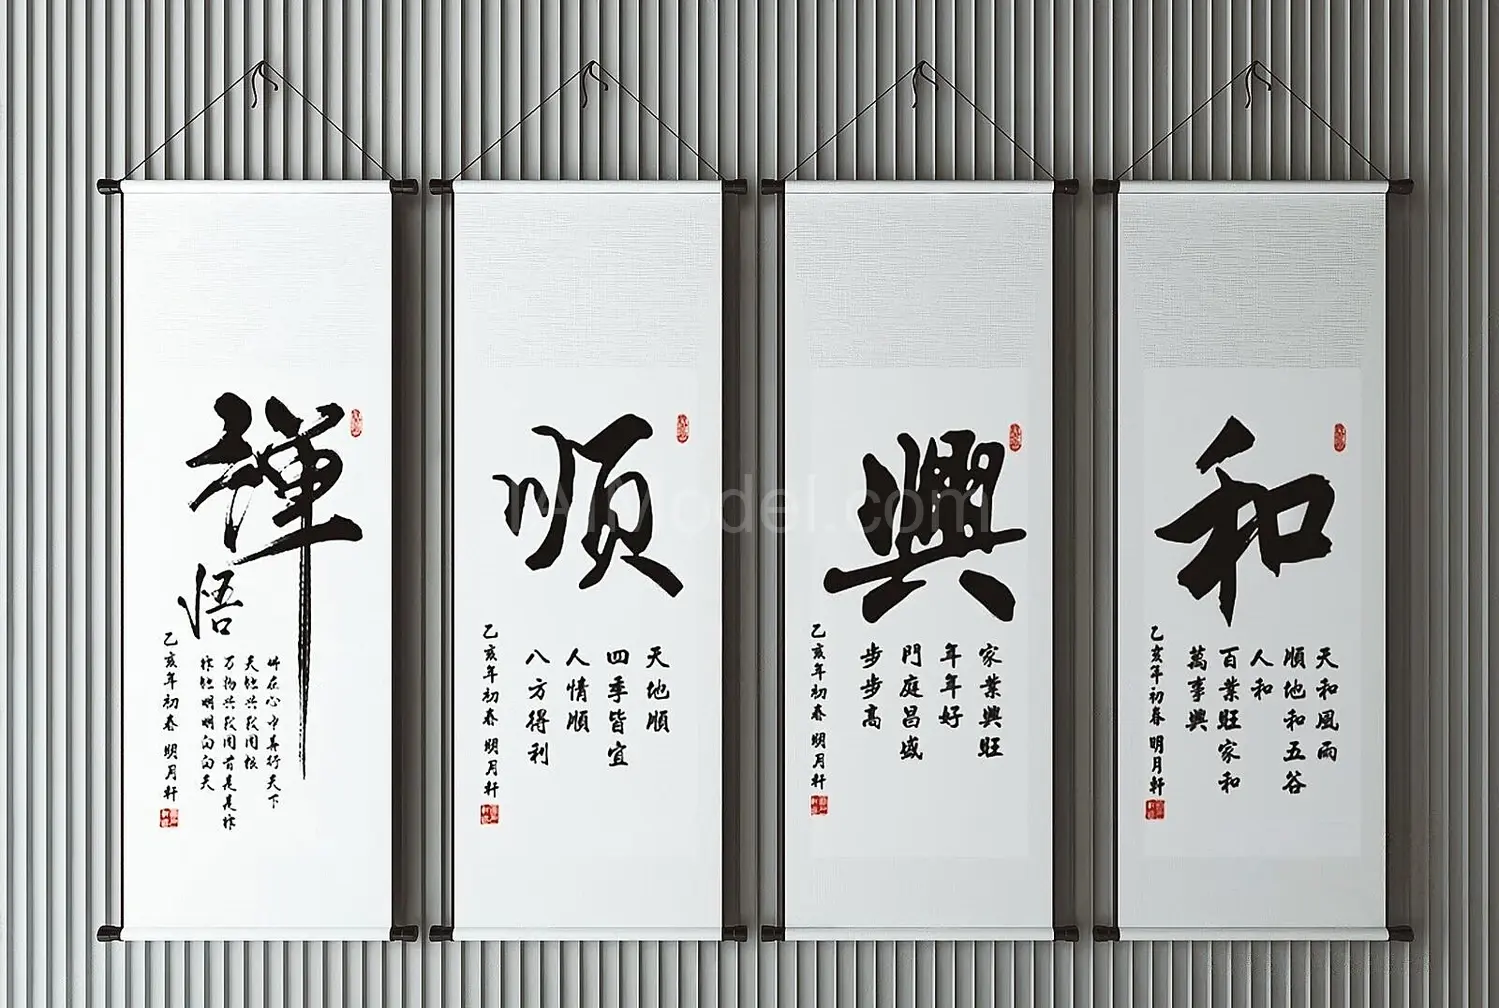 禅
悟
天地與我同根
乙亥年初春 明月軒
顺
天地順
四季皆宜
人情順
八方得利
乙亥年初春 明月軒
興
家業興旺
年年好
門庭昌盛
步步高
乙亥年初春 明月軒
和
天和風雨
順地和五谷
人和
百業旺家和
萬事興
乙亥年初春 明月軒
IAIModel.com